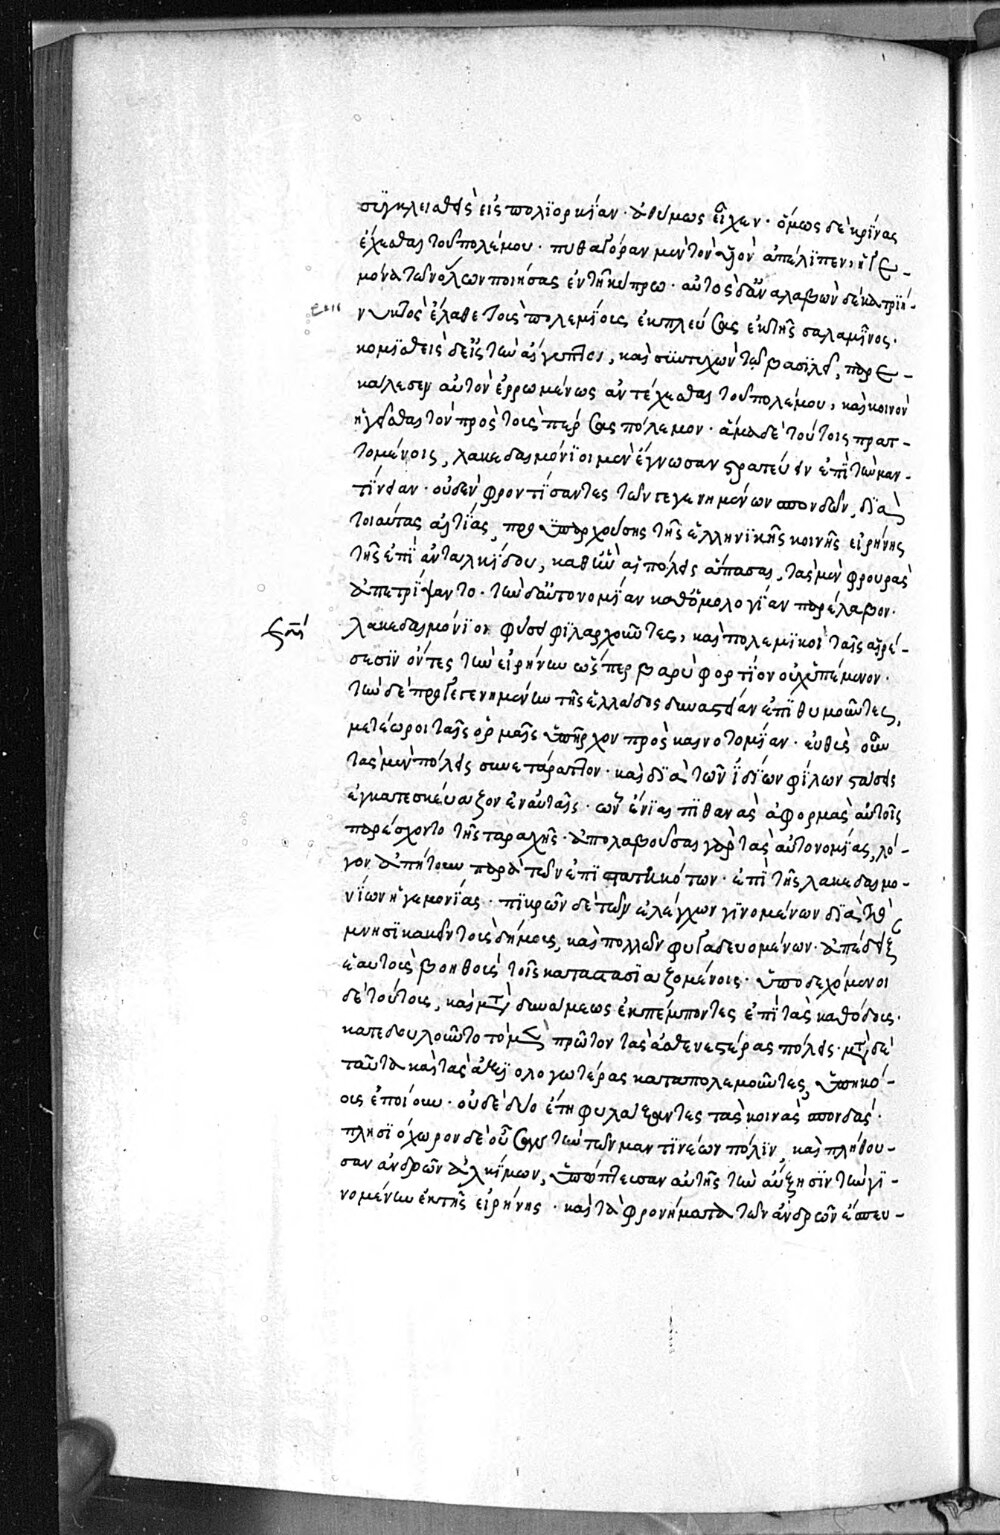 συγκλεισθεὶς εἰς πολϊορκίαν· ἀθύμως εἶχεν· ὅμως δὲ κρίνας
ἔχεσθαι τοῦ πολέμου· πυθαγόραν μὲν τὸν υἱὸν ἀπέλϊπεν, ἡγε-
μόνα τῶν ὅλων ποιήσας ἐν τῆ κύπρω· αὐτὸς δ' ἀναλαβὼν δέκα τριή-
νυκτὸς ἔλαθε τοὺς πολεμΐους ἐκπλεύσας ἐκ τῆς σαλαμῖνος·
κομϊσθεὶς δ' εἰς τὴν αἴγυπτον, καὶ συντυχὼν τῶ βασϊλεῖ, παρε-
κάλεσεν αὐτὸν ἐρρωμένως ἀντέχεσθαι τοῦ πολέμου, καὶ κοινὸν
ἡγεῖσθαι τὸν πρὸς τοὺς πέρσας πόλεμον· ἅμα δὲ τούτοις πρατ-
τομένοις, λακεδαιμόνϊοι μὲν ἔγνωσαν στρατεύειν ἐπὶ τὴν μαν-
τίνειαν· οὐδὲν φροντΐσαντες τῶν γεγενημένων σπονδῶν, δϊὰ
τοιαύτας αἰτΐας, προϋπαρχούσης τῆς ἑλληνϊκῆς κοινῆς εἰρήνης
τῆς ἐπὶ ἀνταλκΐδου, καθ' ἣν αἱ πόλεις ἅπασαι, τὰς μὲν φρουρὰς
ἀπετρΐψαντο· τὴν δ' αὐτονομΐαν καθ' ὁμολογΐαν παρέλαβον·
λακεδαιμόνϊοι φύσει φϊλαρχοῦντες, καὶ πολεμϊκοὶ ταῖς αἱρέ-
σεσϊν ὄντες τὴν εἰρήνην ὥσπερ βαρὺ φορτΐον οὐχ ὑπέμενον·
τὴν δὲ προγεγενημένην τῆς ἑλλάδος δυναστείαν ἐπϊθυμοῦντες,
μετέωροι ταῖς ὁρμαῖς ὑπῆρχον πρὸς καινοτομΐαν· εὐθὺς οὖν
τὰς μὲν πόλεις συνετάραττον· καὶ δϊὰ τῶν ἰδΐων φΐλων στάσεις
ἐγκατεσκεύαζον ἐν αὐταῖς· ὧν ἔνϊαι πϊθανὰς ἀφορμὰς αὐτοῖς
παρέσχοντο τῆς ταραχῆς· ἀπολαβοῦσαι γὰρ τὰς αὐτονομΐας, λό-
γον ἀπήτουν παρὰ τῶν ἐπϊστατηκότων· ἐπὶ τῆς λακεδαιμο-
νΐων ἡγεμονΐας· πϊκρῶν δὲ τῶν ἐλέγχων γϊνομένων δϊὰ τὸ
μνησϊκακεῖν τοὺς δήμους, καὶ πολλῶν φυγαδευομένων· ἀπέδειξ
ἑαυτοὺς βοηθοὺς τοῖς καταστασϊαζομένοις· ὑποδεχόμενοι
δὲ τούτους, καὶ μετὰ δυνάμεως ἐκπέμποντες ἐπὶ τὰς καθόδους·
κατεδουλοῦντο τὸ μὲν πρῶτον τὰς ἀσθενεστέρας πόλεις· μετὰ δὲ
ταῦτα καὶ τὰς ἀξϊολογωτέρας καταπολεμοῦντες, ὑπηκό-
ους ἐποίουν· οὐδὲ δύο ἔτη φυλάξαντες τὰς κοινὰς σπονδάς·
πλησϊόχωρον δὲ οὖσαν τὴν τῶν μαντϊνέων πόλϊν, καὶ πλήθου-
σαν ἀνδρῶν ἀλκΐμων, ὑπώπτευσαν αὐτῆς τὴν αὔξησϊν τὴν γϊ-
νομένην ἐκ τῆς εἰρήνης· καὶ τὰ φρονήματα τῶν ἀνδρῶν ἔσπευ-